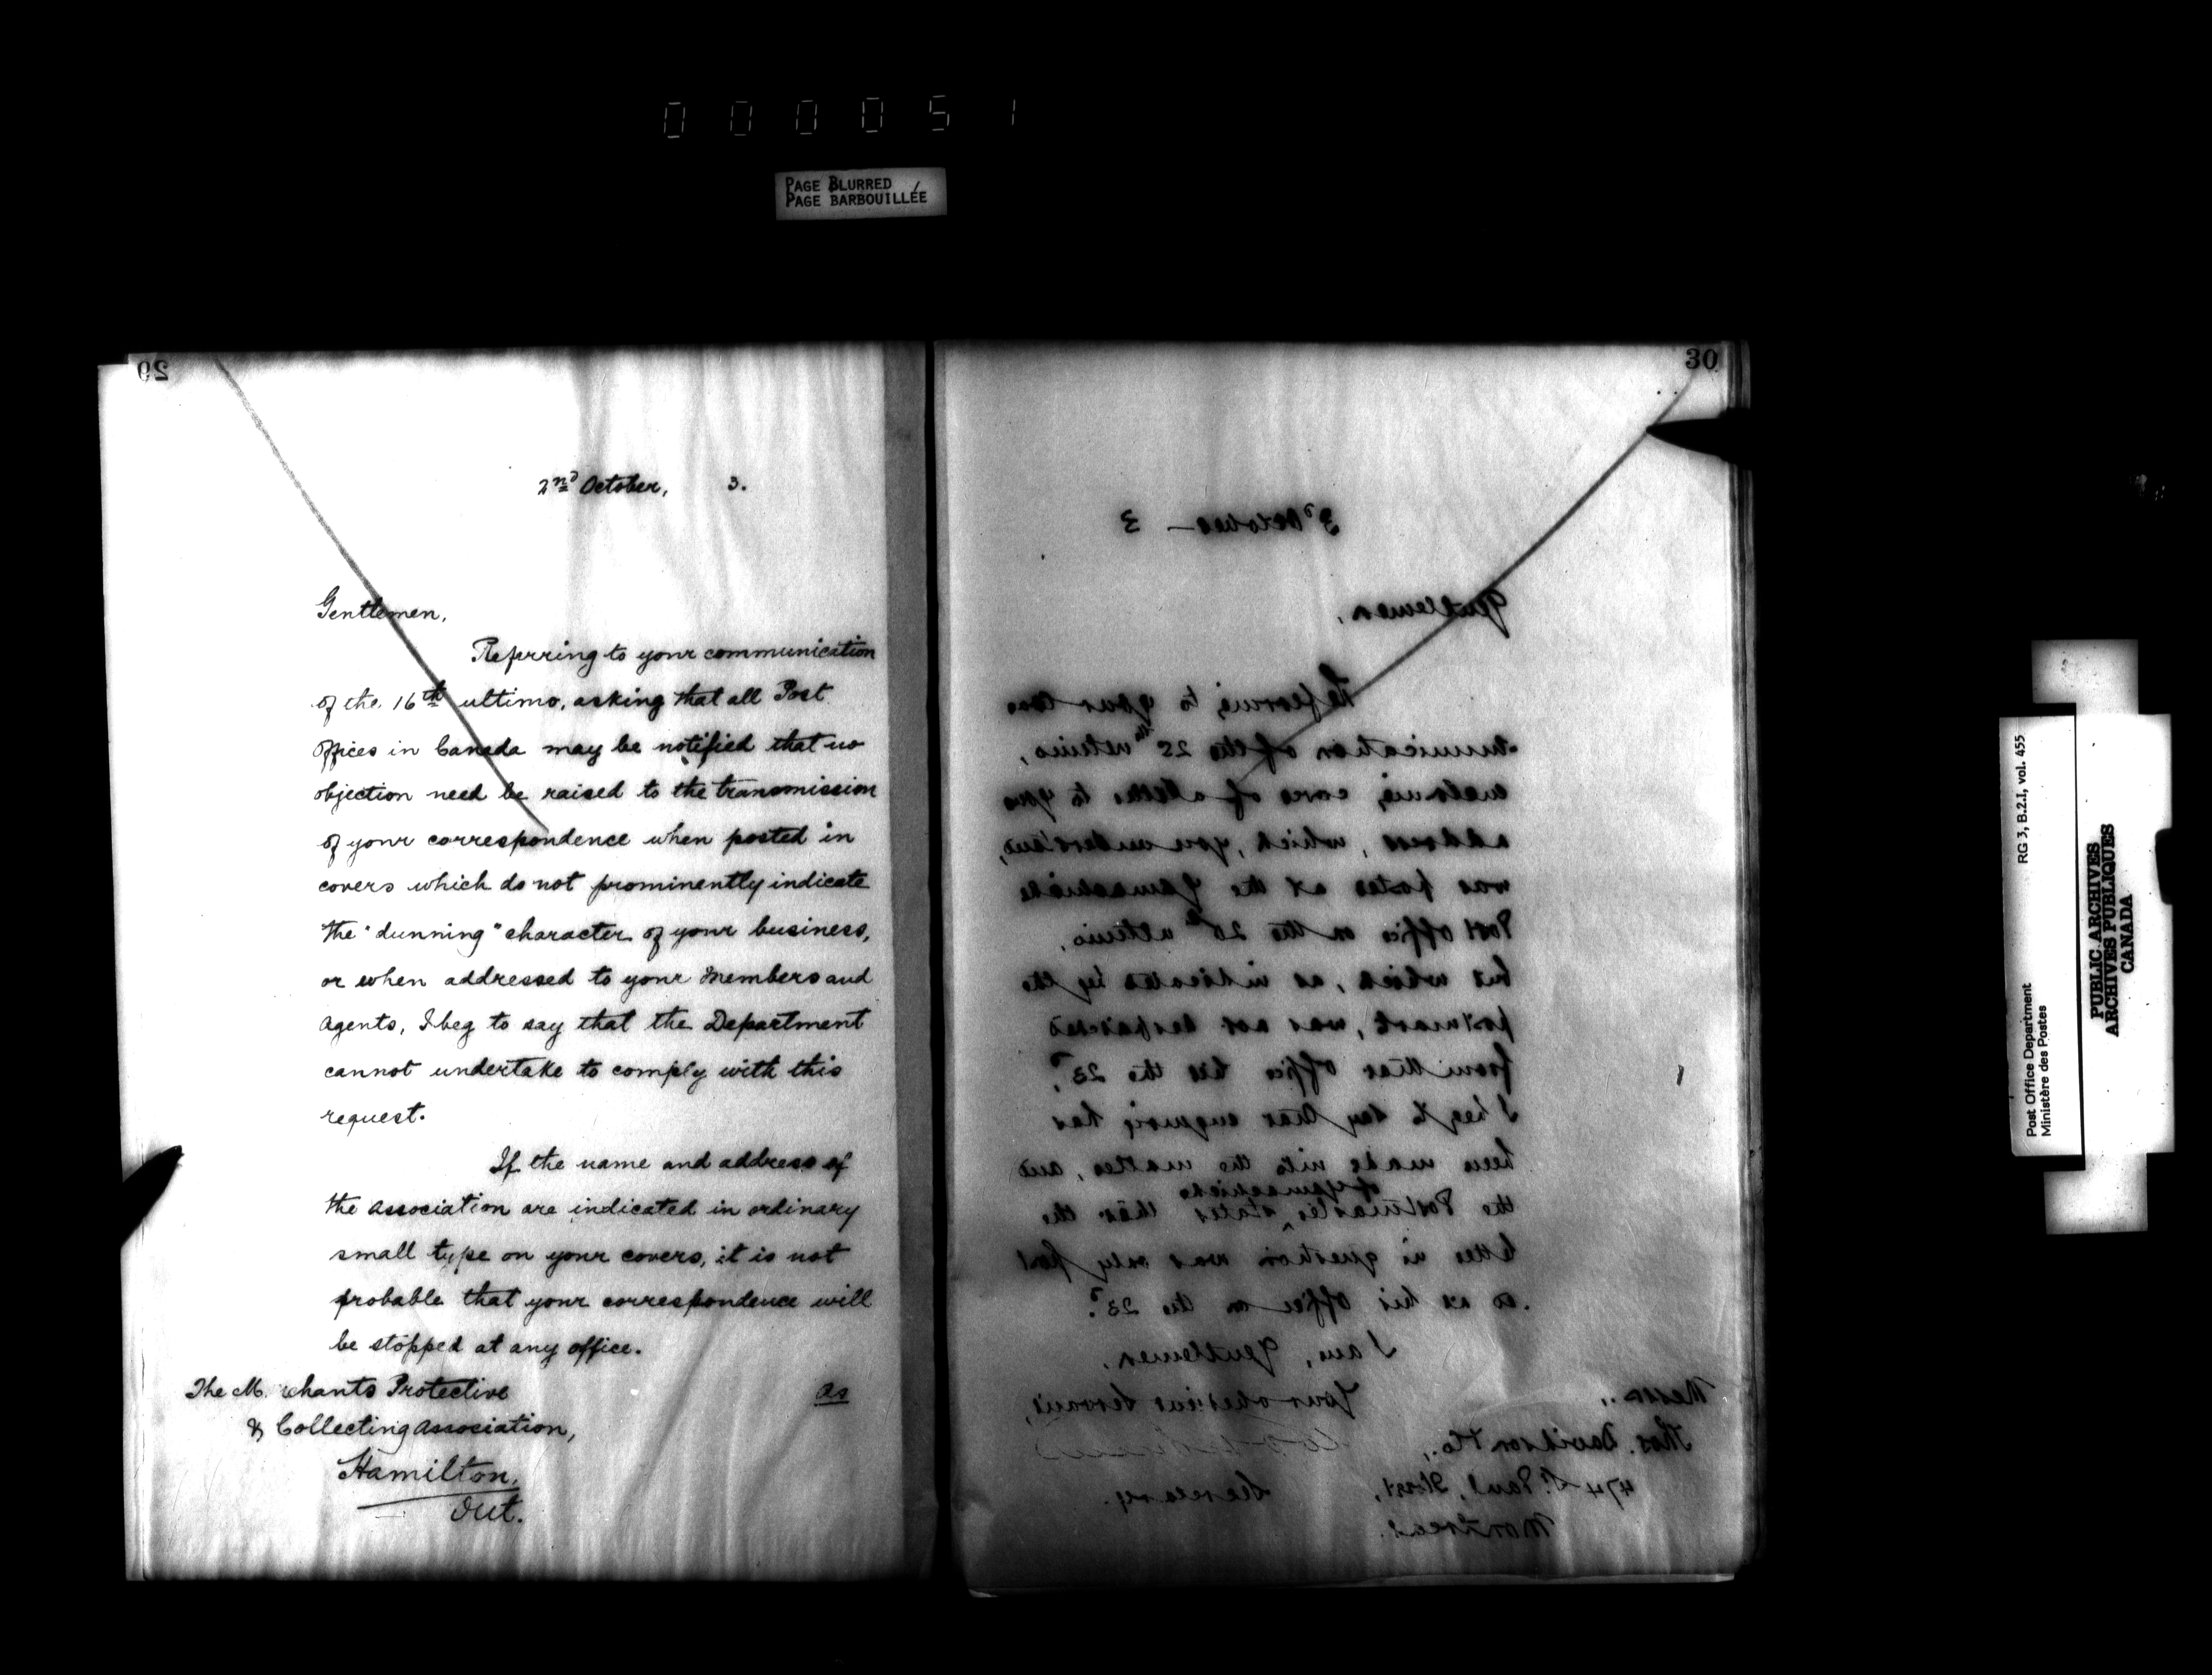 000051
PAGE BLURRED
PAGE BARBOUILLÉE
29
2nd October, 3.
Gentlemen,
Referring to your communication
of the 16th ultimo, asking that all Post
Offices in Canada may be notified that no
objection need be raised to the transmission
of your correspondence when posted in
covers which do not prominently indicate
the "dunning" character of your business,
or when addressed to your Members and
Agents, I beg to say that the Department
cannot undertake to comply with this
request.
If the name and address of
the Association are indicated in ordinary
small type on your covers, it is not
probable that your correspondence will
be stopped at any office.
The M rchants Protective
& Collecting Association,
Hamilton,
Ont.
as
30
3d October — 3
Gentlemen,
Referring to your com
-munication of the 25th ultimo,
enclosing cover of a letter to your
address, which, you understand,
was posted at the Yamachiche
Post Office on the 20th ultimo,
but which, as indicated by the
postmark, was not despatched
from that office till the 23d,
I beg to say that enquiry has
been made into the matter, and,
the Postmaster of Yamachiche states that the
letter in question was only post
-ed at his office on the 23d.
I am, Gentlemen,
Your obedient Servant,
Secretary.
Messrs.
Thos. Davidson & Co.,
474 St. Paul Street,
Montreal.
Post Office Department
Ministère des Postes
RG 3, B.2.I, vol. 455
PUBLIC ARCHIVES
ARCHIVES PUBLIQUES
CANADA